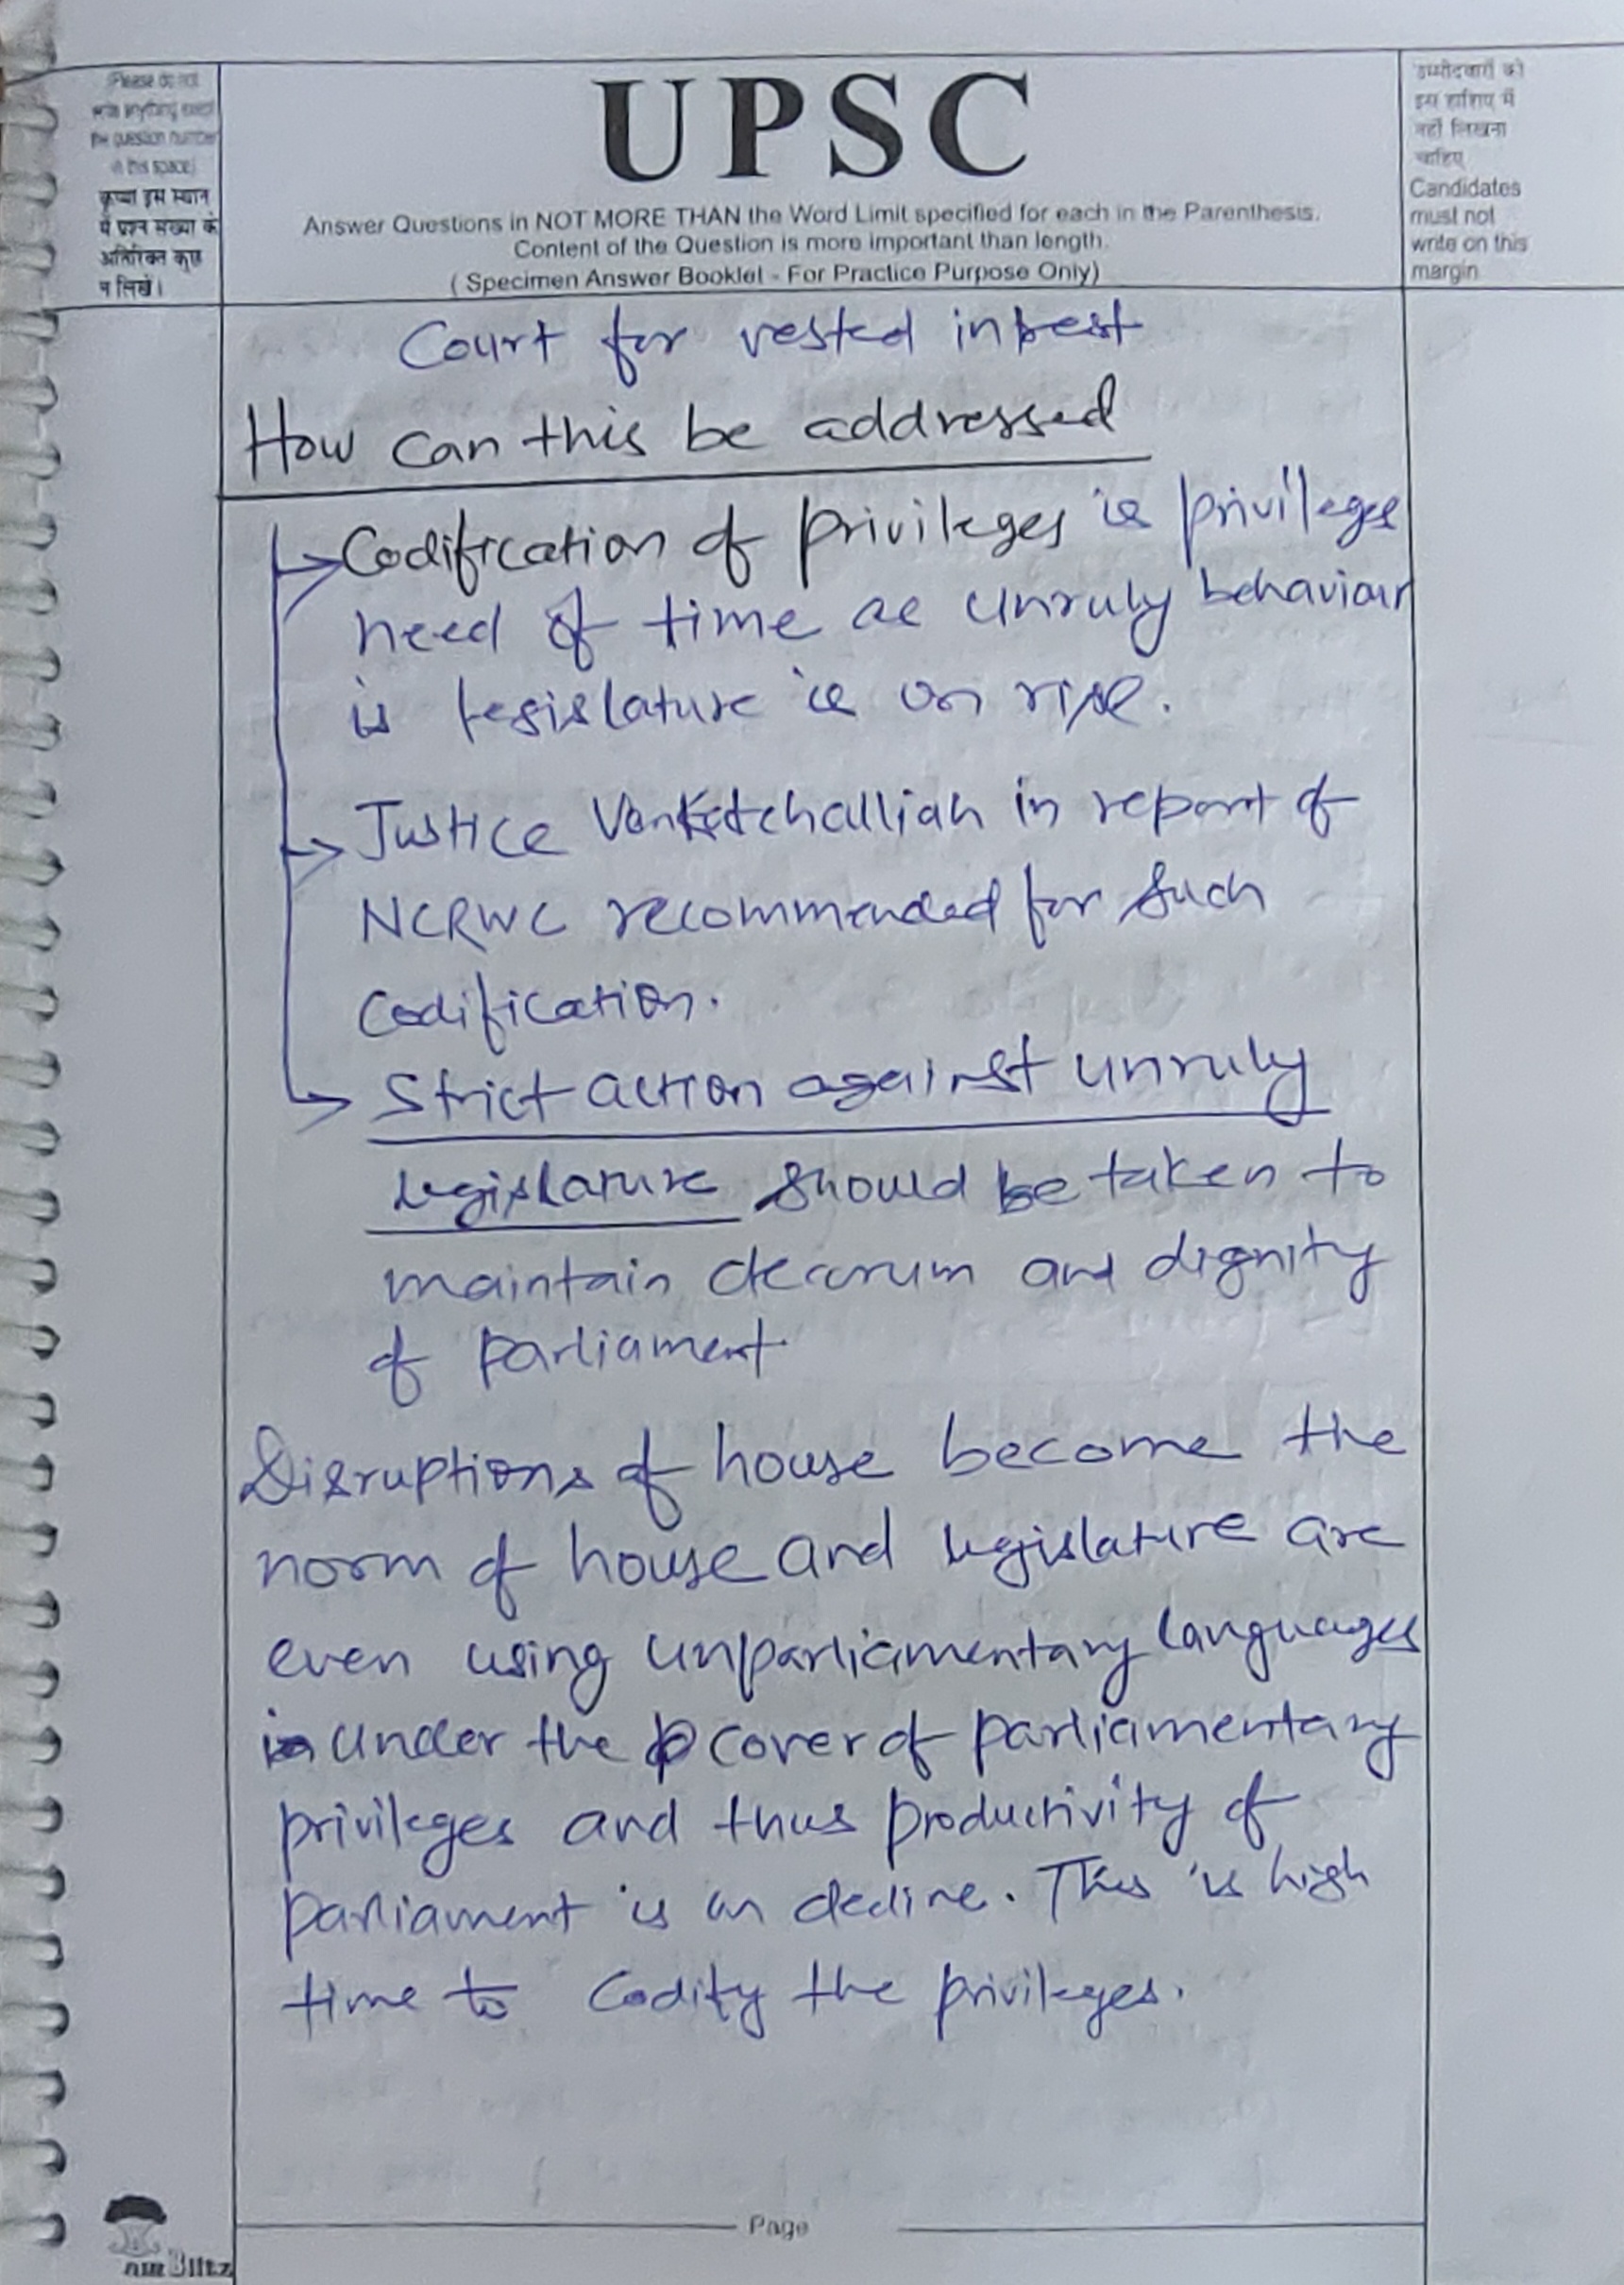 (Please do not
write anything except
the question number
in this space)
कृपया इस स्थान
में प्रश्न संख्या के
अतिरिक्त कुछ
न लिखें।
UPSC
Answer Questions in NOT MORE THAN the Word Limit specified for each in the Parenthesis.
Content of the Question is more important than length.
( Specimen Answer Booklet - For Practice Purpose Only)
उम्मीदवारों को
इस हाशिए में
नहीं लिखना
चाहिए
Candidates
must not
write on this
margin
Court for vested
How can this be addressed
Codification of privileges is privileges
need of time as unruly behaviour
is legislature is on rise.
Justice Venketchalliah in report of
NCRWC recommended for such
codification.
Strict action against unruly
legislature should be taken to
maintain decorum and dignity
of parliament
Disruptions of house become the
norm of house and legislature are
even using unparliamentary languages
under the cover of parliamentary
privileges and thus productivity of
parliament is on decline. This is high
time to codify the privileges.
Page